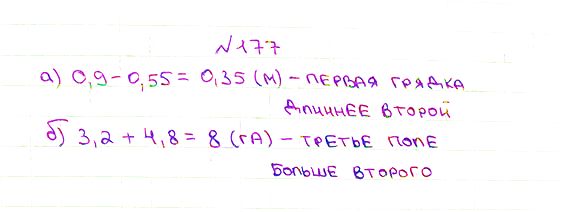 №177
а) 0,9 - 0,55 = 0,35 (м) - ПЕРВАЯ ГРЯДКА
ДЛИННЕЕ ВТОРОЙ
б) 3,2 + 4,8 = 8 (ГА) - ТРЕТЬЕ ПОЛЕ
БОЛЬШЕ ВТОРОГО